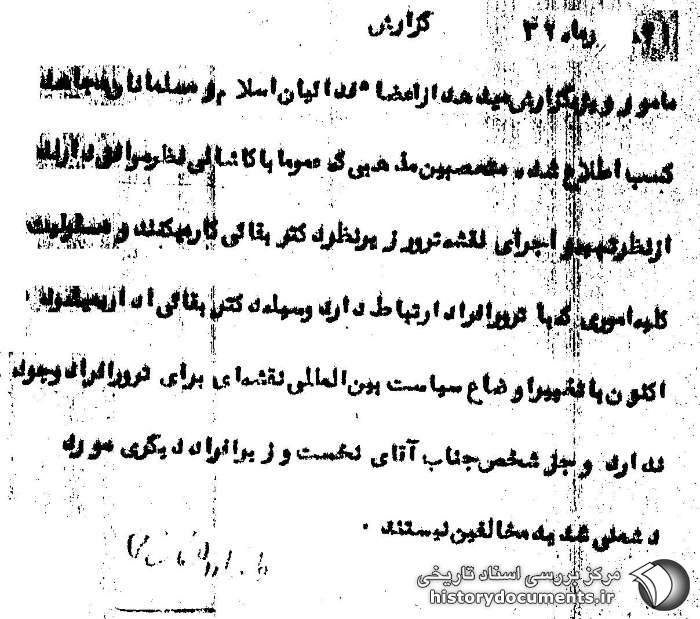 گزارش
مامور ویژه گزارش میدهد از اعضاء فدائیان اسلام و مسلمانان مجاهد
کسب اطلاع شده متعصبین مذهبی که عموما با کاشانی نظر موافق دارند
از نظر تهیه و اجرای نقشه ترور زیر نظر دکتر بقائی کار میکنند و مسئولیت
کلیه اموری که با ترور افراد ارتباط دارد وسیله دکتر بقائی اداره میشود
اکنون با تغییر اوضاع سیاست بین المللی نقشه ای برای ترور افراد وجود
ندارد و جز شخص جناب آقای نخست وزیر افراد دیگری مورد
دشمنی شدید مخالفین نیستند .
مرکز بررسی اسناد تاریخی
historydocuments.ir